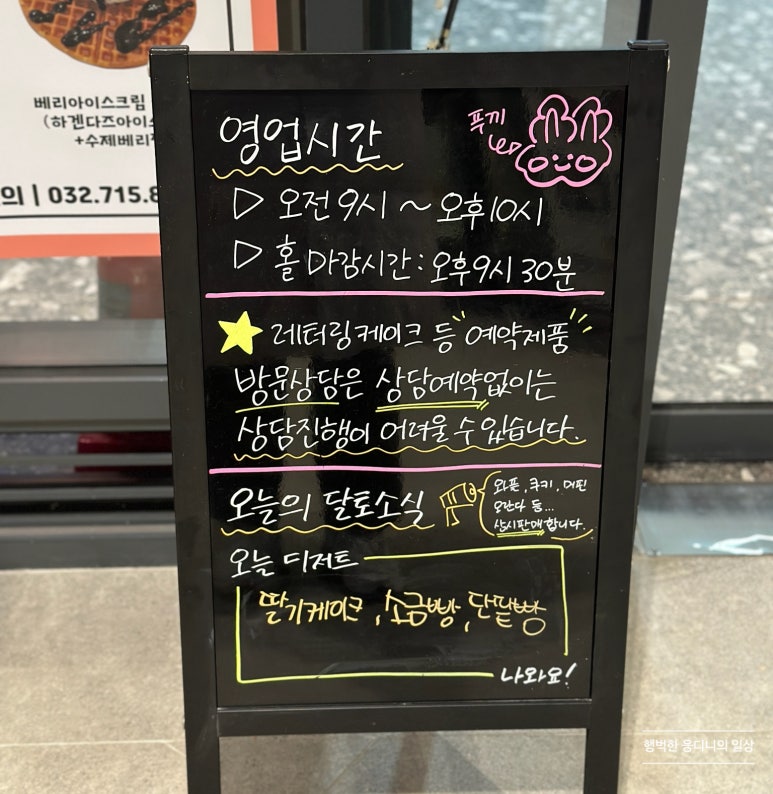 베리아이스크림
(하겐다즈아이스
+수제베리
의 | 032.715.8
영업시간
푸끼
▷ 오전 9시 ~ 오후 10시
▷ 홀 마감시간 : 오후 9시 30분
★ 레터링케이크 등 "예약제품"
방문상담은 상담예약없이는
상담진행이 어려울 수 있습니다.
오늘의 달토소식
와플, 쿠키, 머핀
오란다 등...
상시판매 합니다.
오늘 디저트
딸기케이크, 소금빵, 단팥빵
나와요!
행벅한 웅디니의 일상